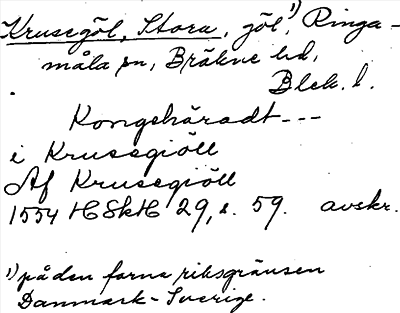 Krusegöl, Stora, göl,¹) Ringa-
måla sn, Bräkne hd,
Blek. l.
Kongshäradt---
i Krussegiöll
Af Krusegiöll
1554 HSkH 29, s. 59. avskr.
¹) på den forna riksgränsen
Danmark-Sverige.